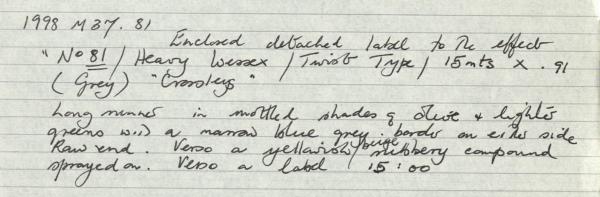 1998 M37. 81
Enclosed detached label to the effect
"No 81 / Heavy Wessex / Twist Type / 15mts x .91
(Grey) "Crossleys"
Long runner in mottled shades of olive & lighter
greens with a narrow blue grey. border on either side
Raw end. Verso a yellowish/beige rubbery compound
sprayed on. Verso a label 15:00